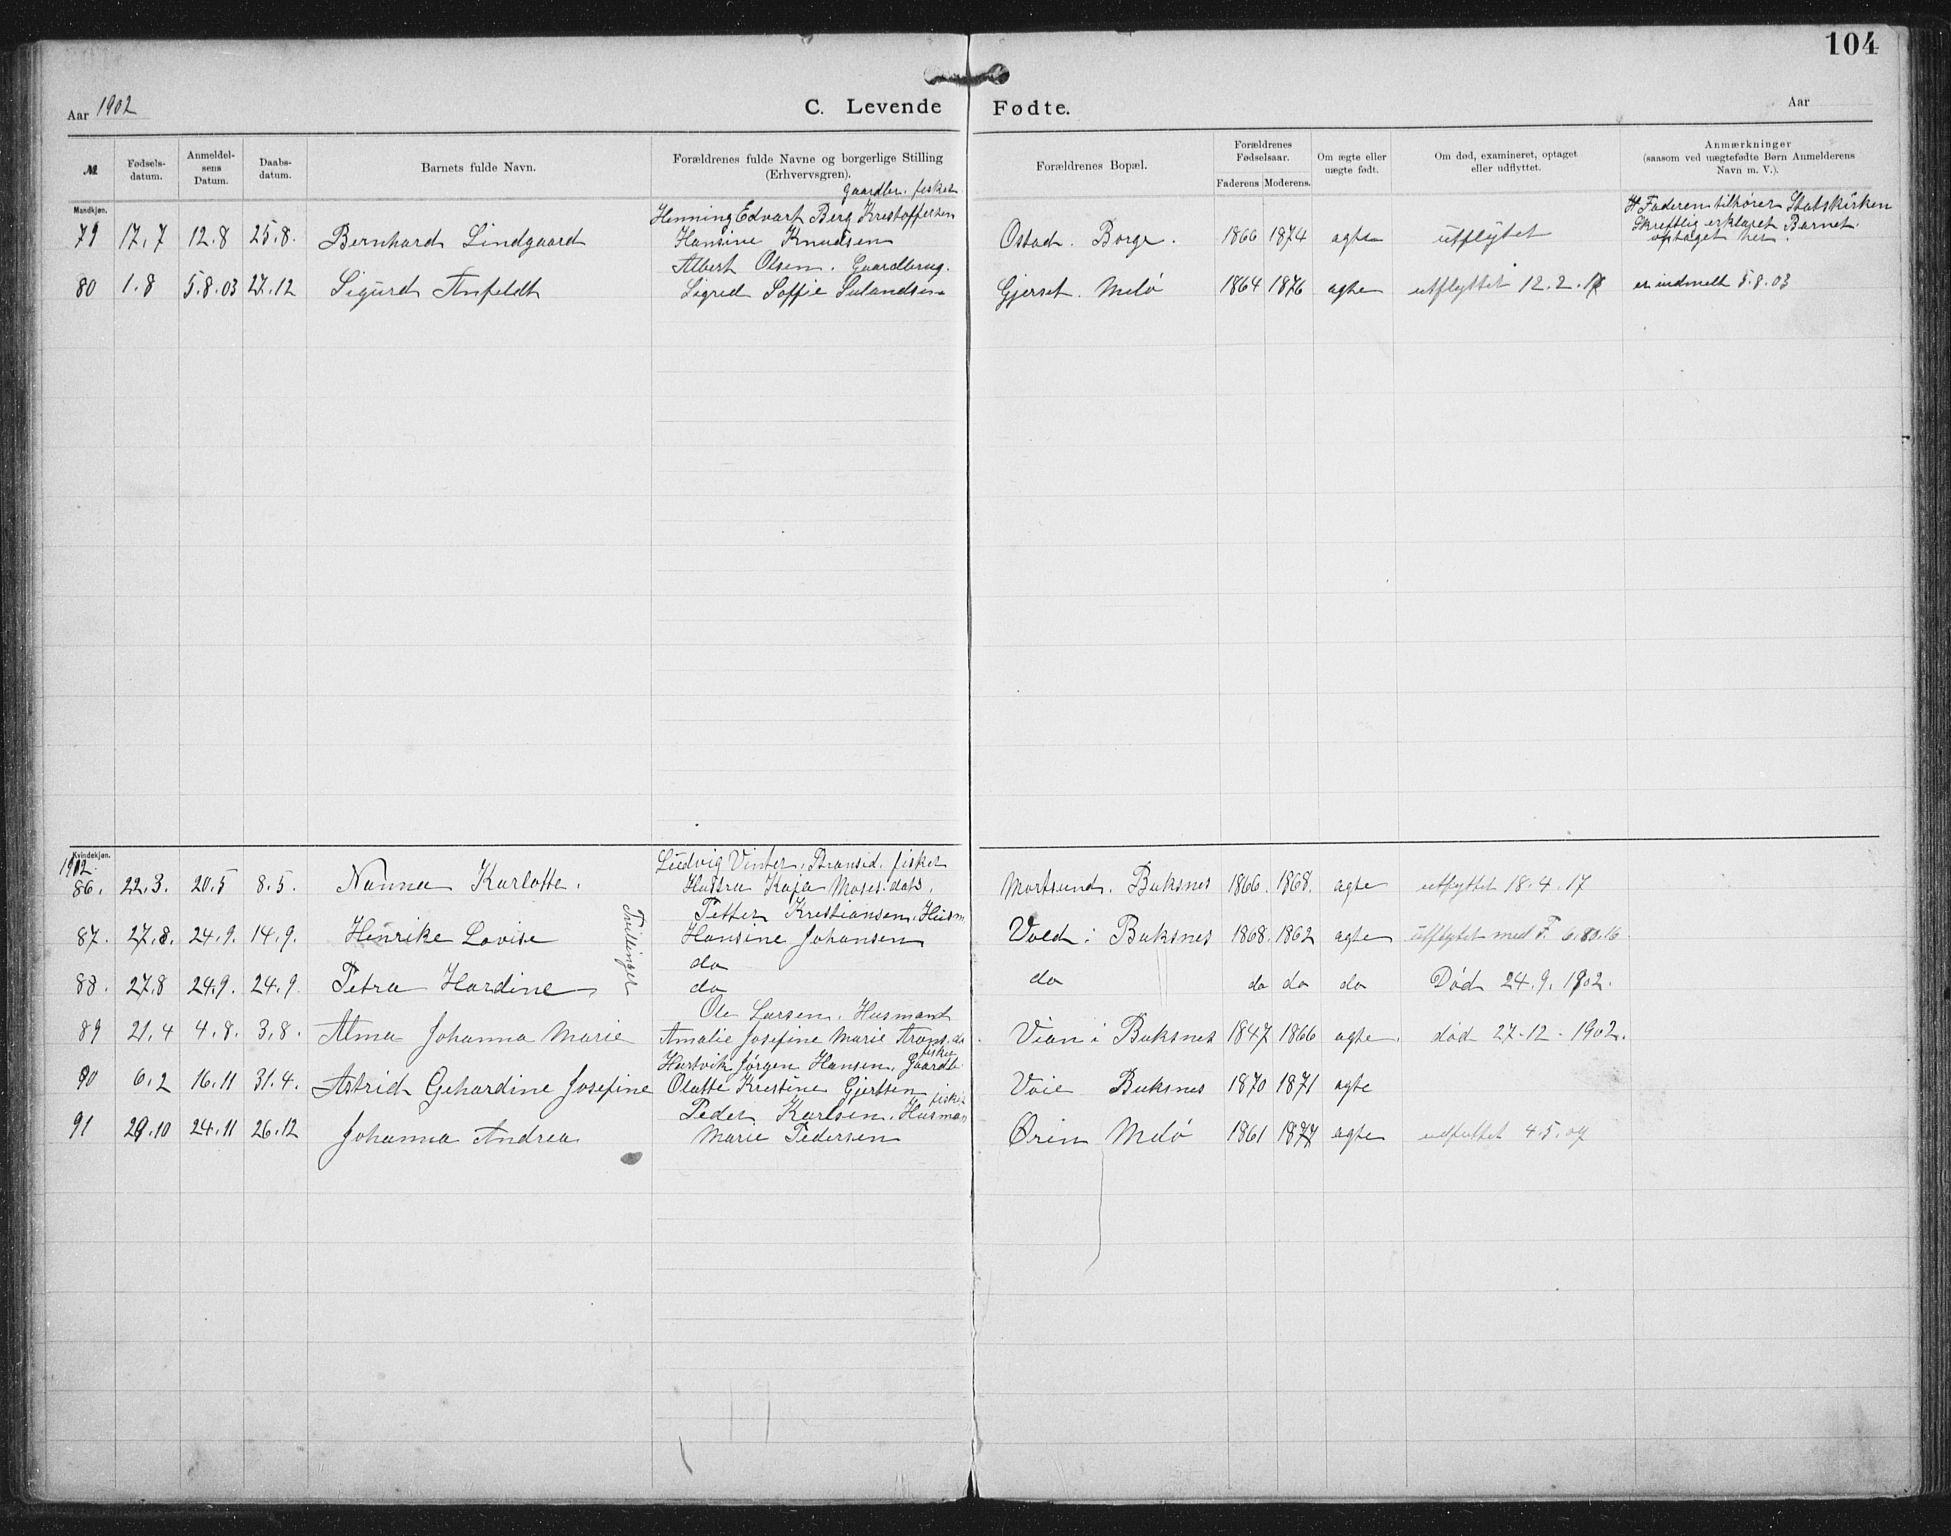 104
Aar 1902
C. Levende Fødte.
Aar
№
Fødsels-
datum.
Anmeldel-
sens
Datum.
Daabs-
datum.
Barnets fulde Navn.
Forældrenes fulde Navne og borgerlige Stilling
(Erhvervsgren).
Forældrenes Bopæl.
Forældrenes
Fødselsaar.
Faderens Moderens.
Om ægte eller
uægte født.
Om død, examineret, optaget
eller udflyttet.
Anmærkninger
(saasom ved uægtefødte Børn Anmelderens
Navn m. V.).
Mandkjøn.
Gaardbr. fisker
Henning Edvart Berg Kristoffersen
79 17.7 12.8 25.8. Bernhard Lindgaard Hansine Knudsen Ostad. Borge. 1866 1874 agte utflytet
Faderen tilhører Statskirken
Skreftlig erklæret Barnet
optaget her.
Albert Olsen. Gaardbrug.
80 1.8 5.8.03 27.12 Sigurd Anfeldt Sigrid Soffie Gjerset. Melö 1864 1876 agte utflyttet 12.2.18 er indmelt 5.8.03
Kvindekjøn.
1902.
Ludvig Vinter, fisker
86. 22.3. 20.5 8.5. Nanna Karlotte. Hustru Kaja Moses.dats. Mortsund. Buksnes 1866. 1868. agte utflyttet 18.4.17
Petter Kristiansen, Husm
87. 27.8. 24.9. 14.9. Henrike Lovise Hansine Johansen Vold i Buksnes 1868. 1862 agte utflytet med F.
Tvillinger
do
88. 27.8 24.9. 24.9 Petra Hardine do do do do do Död 24.9.1902.
Ole Larsen. Husmand
89 21.4 4.8. 3.8. Alma Johanna Marie Amalie Josefine Marie Vian i Buksnes 1847 1866 agte. død 27-12-1902.
fisker
Hartvik Jørgen Hansen, Gaardb
90 6.2 16.11 31.4. Astrid Gehardine Josefine Olatte Kristine Gjertsen Voie Buksnes 1870 1871 agte
fisker
Peder Karlsen. Husman
91 29.10 24.11 26.12 Johanna Andrea Marie Pedersen Ørin Melö 1861 1877 agte udfluttet 4.5.09